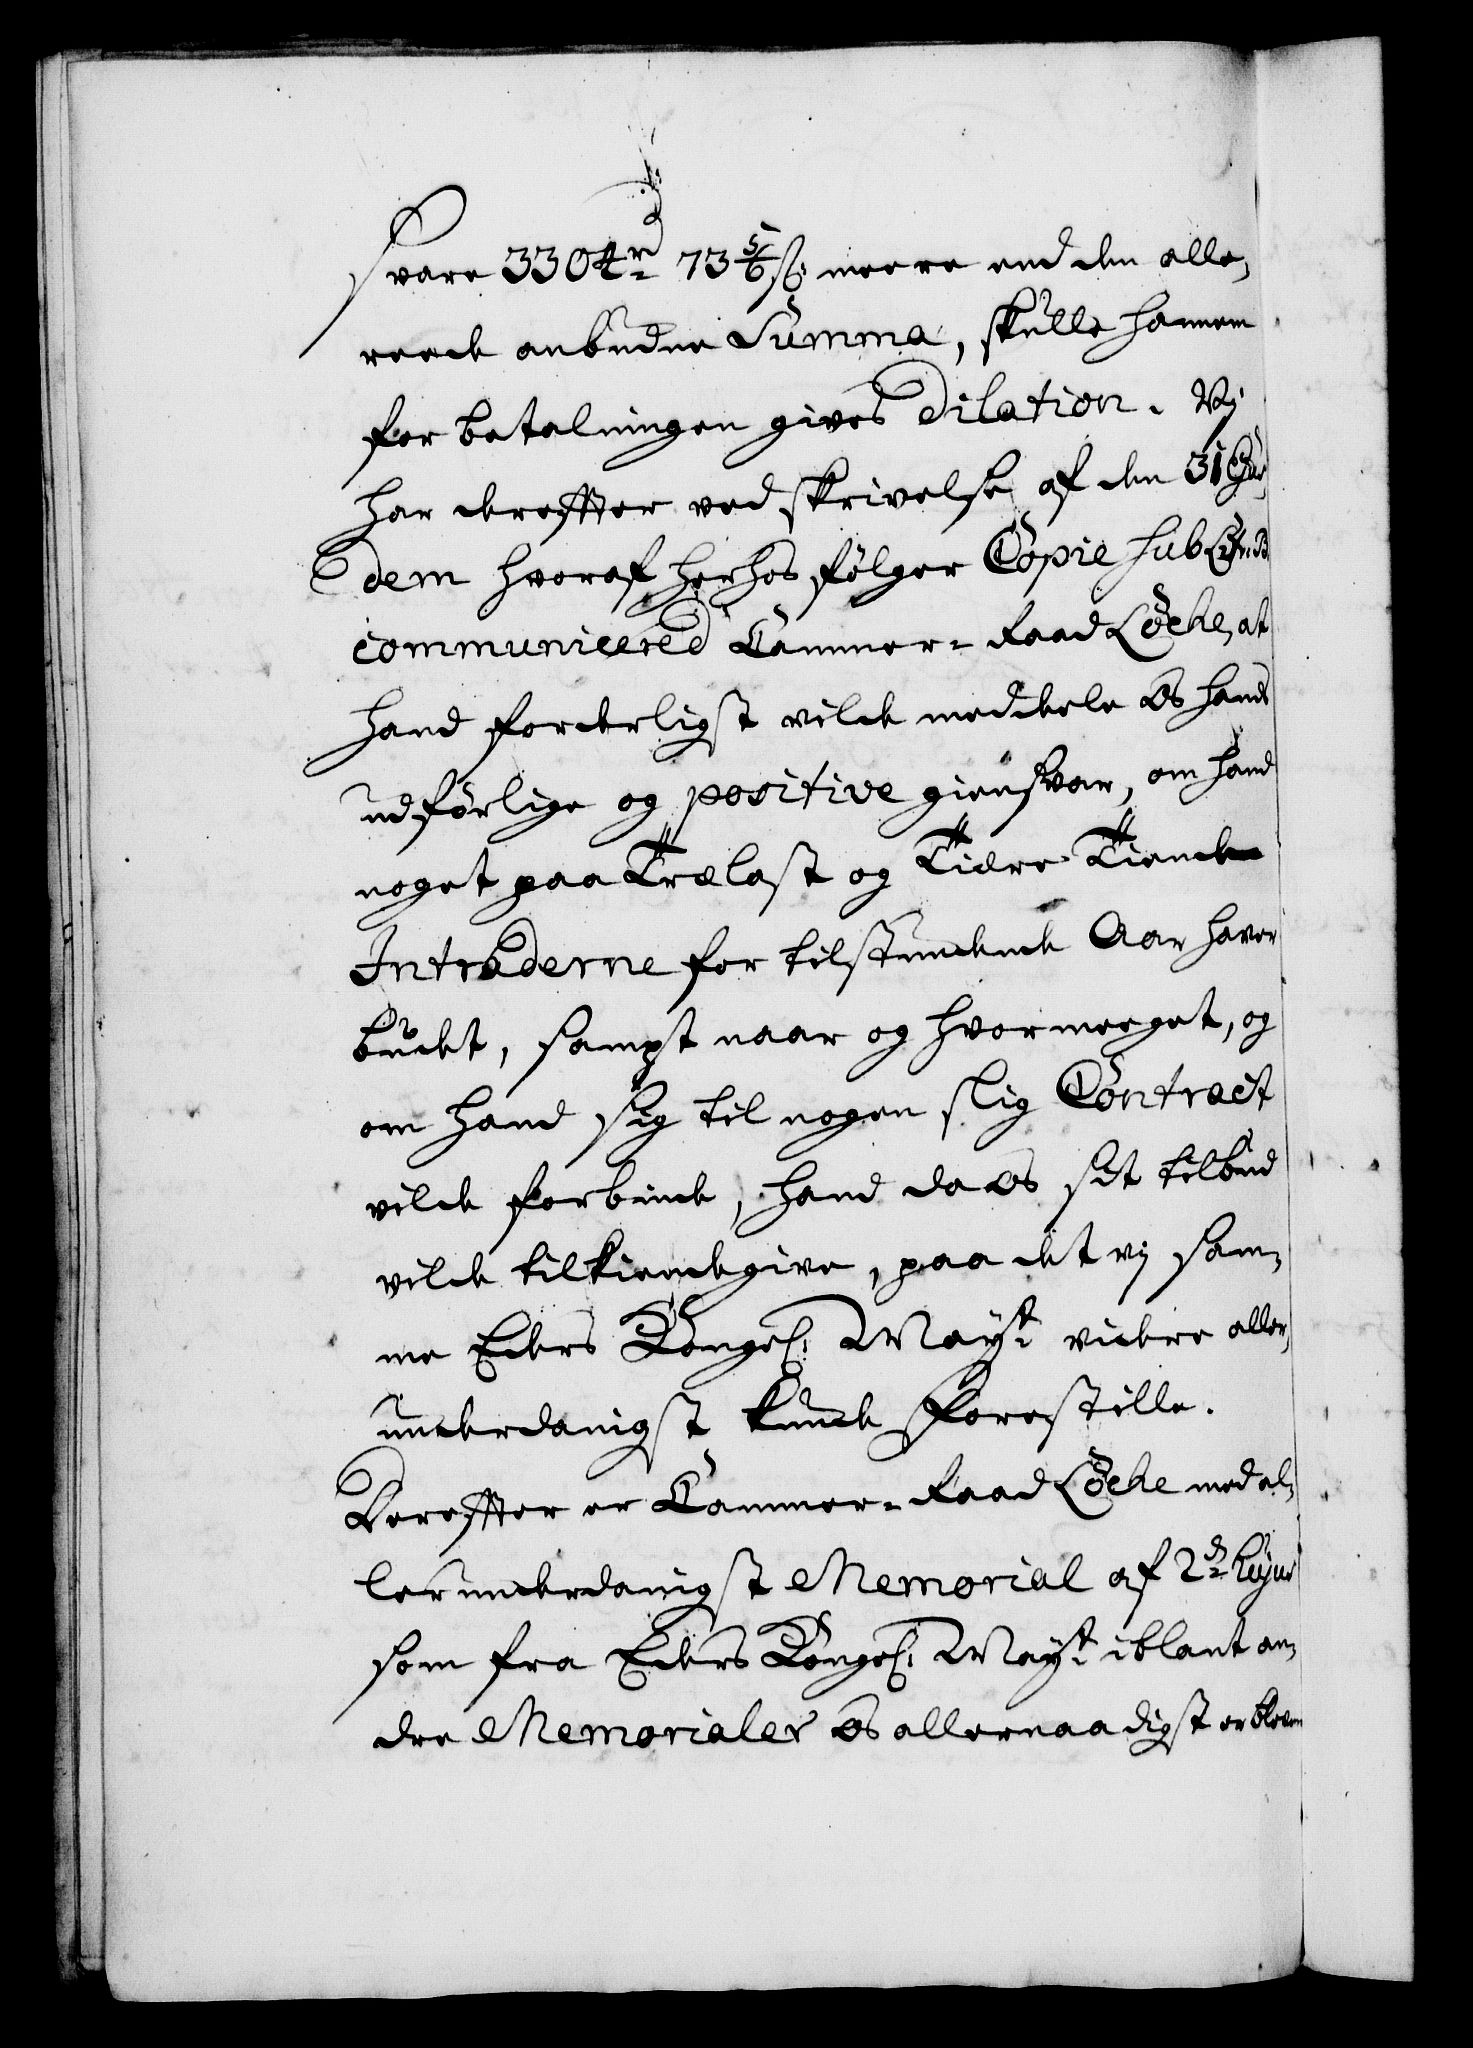 svare 3304 rd 73 5/6 ß. meere end den alle,
reede anbudne Summa, skulle hannem
for betalningen gives Dilation. Vj
har derefter ved skrivelse af den 31
dem hvoraf herhos følger Copie sub Litr. B
communicered Cammer-Raad Löcke, at
hand forderligst vilde meddeele os hans
udførlige og positive giensvar, om hand
noget paa Trælast og Tiære Tiende
Intraderne for tilstundende Aar haver
budet, sampt naar og hvormeeget, og
om hand sig til nogen slig Contract
vilde forbinde, hand da os sit tilbud
vilde tilkiendegive, paa det vj sam-
me Eders Kongel. Mayt. videre aller-
underdanigst kunde forestille.
Derefter er Cammer-Raad Löcke med al-
lerunderdanigst Memorial af 2d. hujus
som fra Eders Kongel. Mayt. iblant an-
dre Memorialer os allernaadigst er bleven